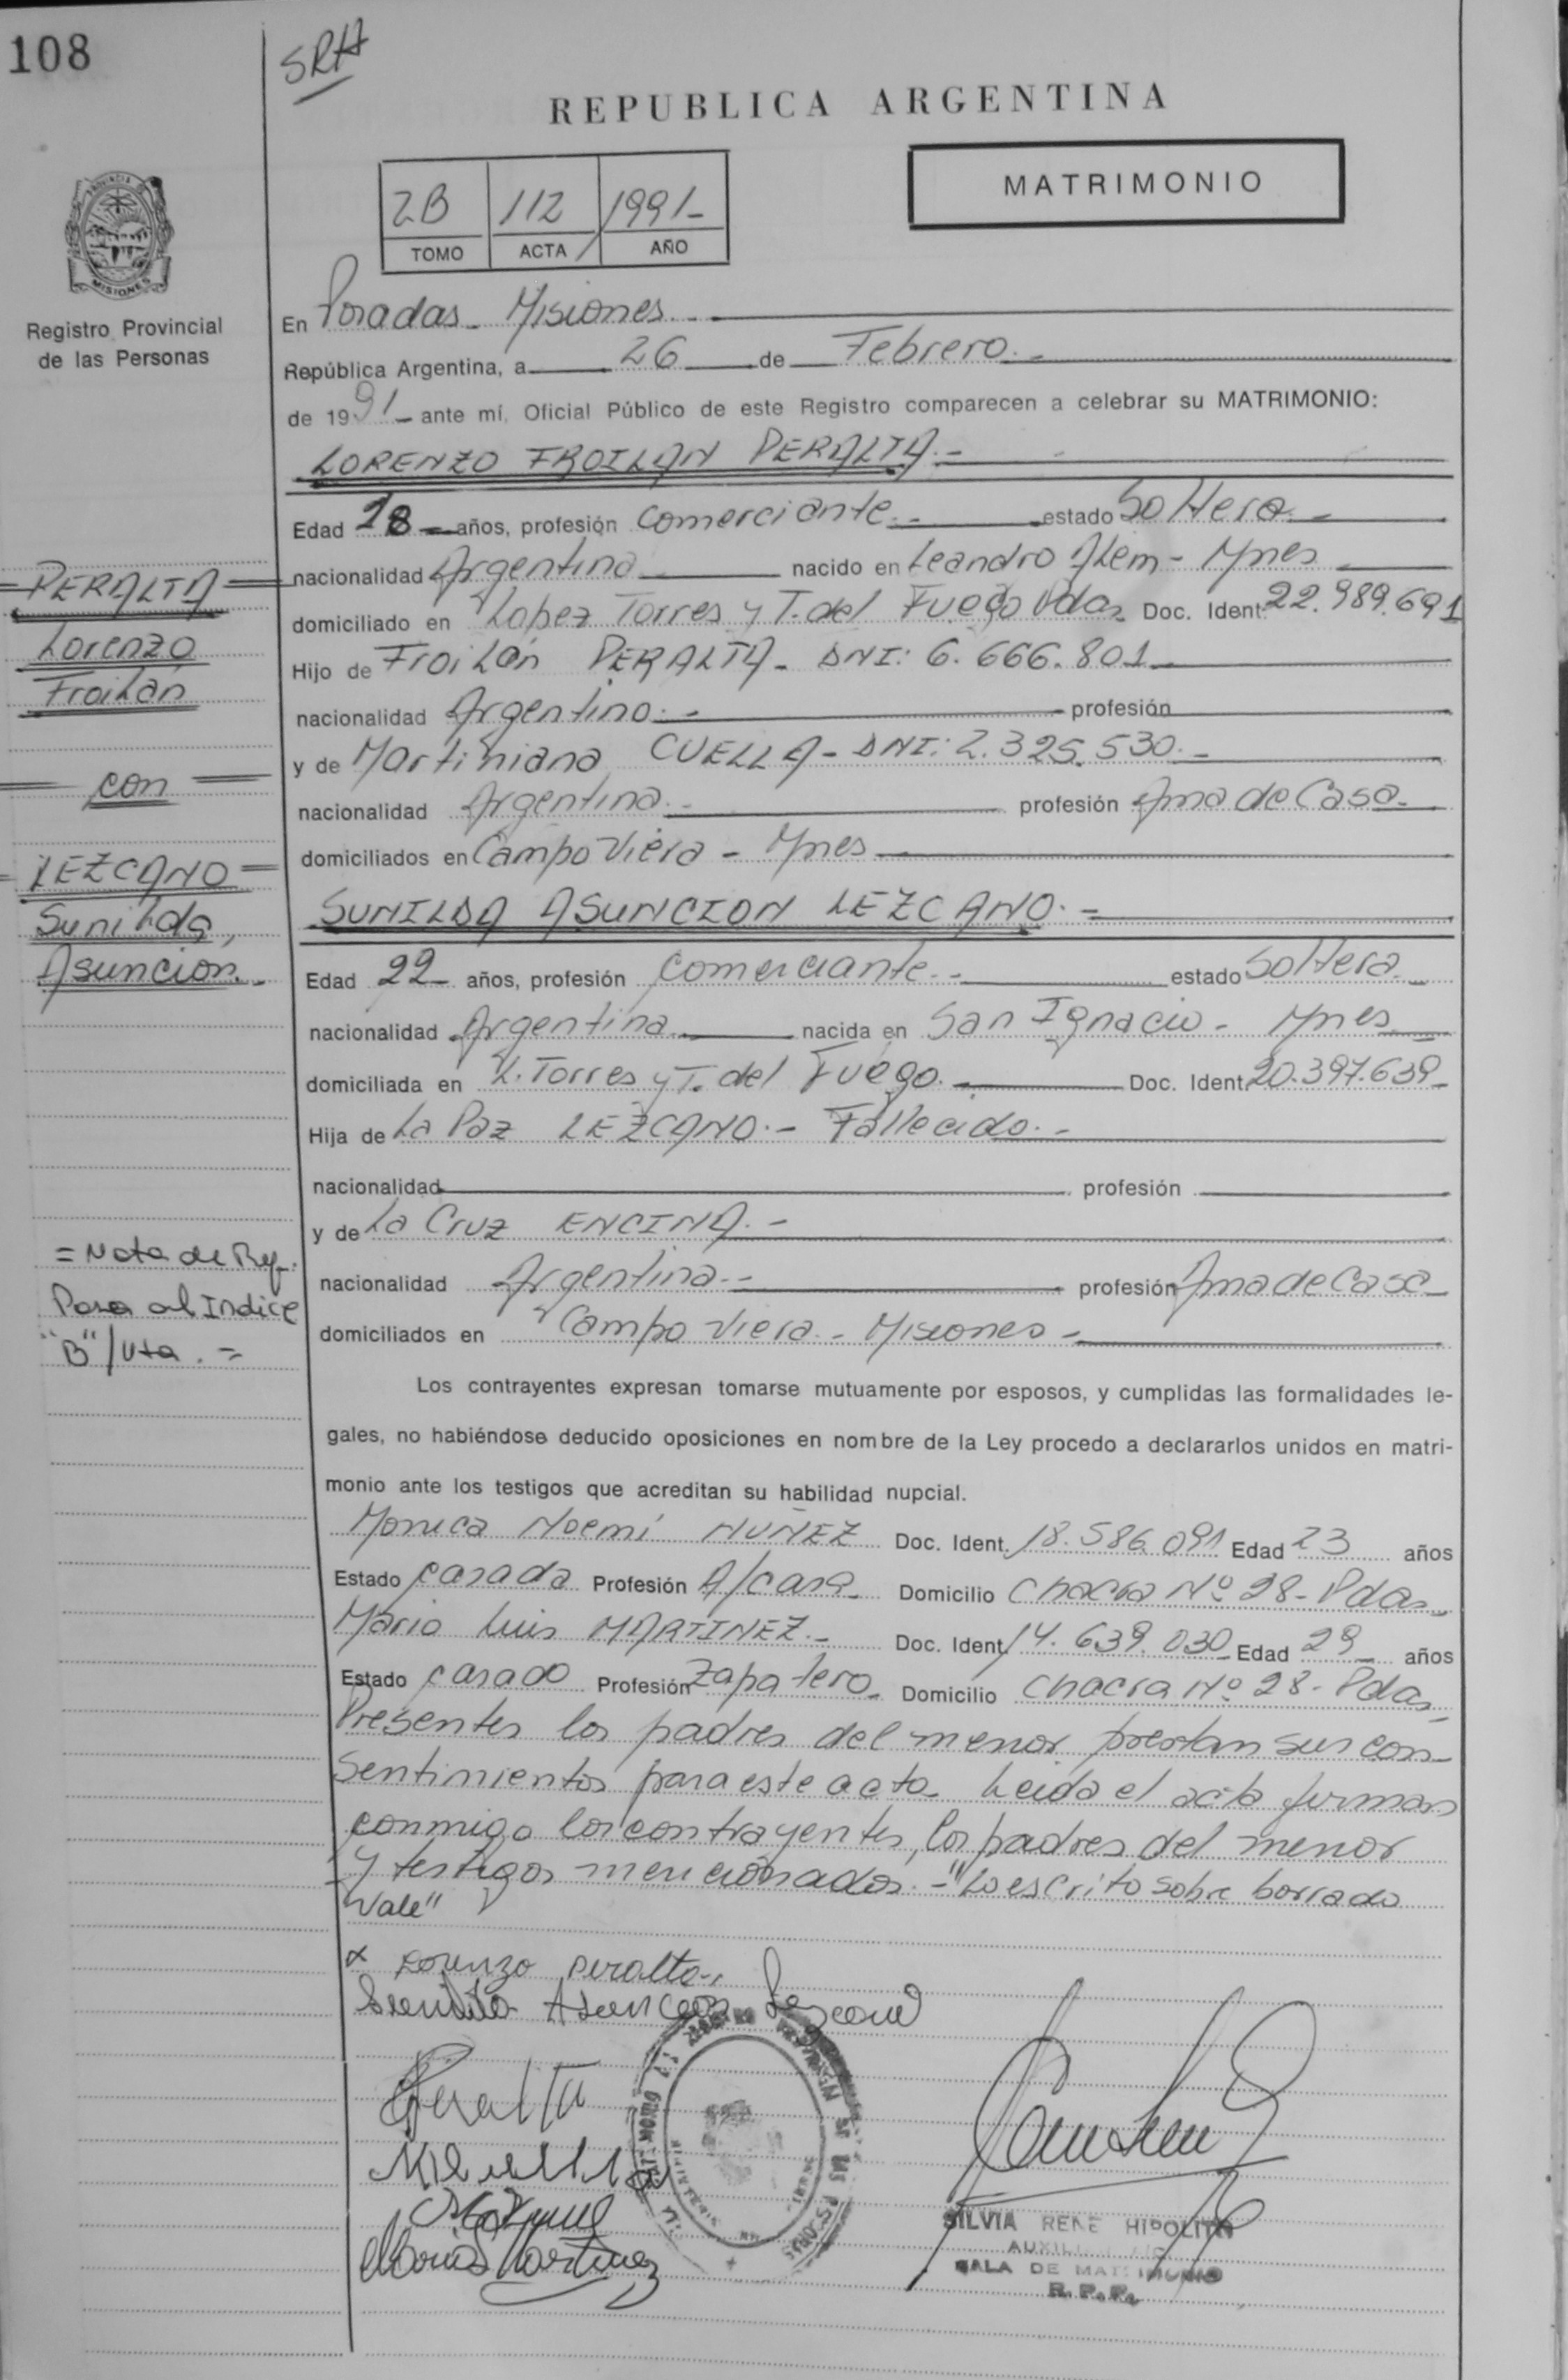 108
SRH
REPUBLICA ARGENTINA
MATRIMONIO
2B 112 1991-
TOMO ACTA AÑO
PROVINCIA DE
MISIONES
Registro Provincial
de las Personas
En Posadas - Misiones.-
República Argentina, a 26 de Febrero.-
de 1991- ante mí, Oficial Público de este Registro comparecen a celebrar su MATRIMONIO:
LORENZO FROILAN PERALTA.-
Edad 18 - años, profesión Comerciante.- estado Soltero.-
nacionalidad Argentina nacido en Leandro Alem - Mnes
domiciliado en Lopez Torres y T. del Fuego Pdas Doc. Ident. 22.989.691
Hijo de Froilán PERALTA - DNI: 6.666.801
nacionalidad Argentino.- profesión
y de Martiniana CUELLA - DNI: 2.325.530.-
nacionalidad Argentina.- profesión Ama de Casa.
domiciliados en Campo Viera - Mnes
PERALTA
Lorenzo
Froilán
con
LEZCANO
Sunilda,
Asuncion.-
SUNILDA ASUNCION LEZCANO.-
Edad 22 - años, profesión Comerciante.- estado Soltera.-
nacionalidad Argentina nacida en San Ignacio - Mnes
domiciliada en L. Torres y T. del Fuego.- Doc. Ident. 20.397.639-
Hija de La Paz LEZCANO.- Fallecido.-
nacionalidad profesión
y de La Cruz ENCINA.-
nacionalidad Argentina.- profesión Ama de Casa-
domiciliados en Campo Viera.- Misiones-
= Nota de Ref.
Pasa al Indice
"B"/Vta.=
Los contrayentes expresan tomarse mutuamente por esposos, y cumplidas las formalidades le-
gales, no habiéndose deducido oposiciones en nombre de la Ley procedo a declararlos unidos en matri-
monio ante los testigos que acreditan su habilidad nupcial.
Monica Noemí NUÑEZ Doc. Ident. 18.586.091 Edad 23 años
Estado casada Profesión A/casa Domicilio Chacra Nº 28- Pdas-
Mario Luis MARTINEZ.- Doc. Ident. 14.639.030 Edad 29 años
Estado casado Profesión Zapatero- Domicilio Chacra Nº 28- Pdas-
Presentes los padres del menor prestan sus con-
sentimientos para este acto- Leida el acta firman
conmigo los contrayentes, los padres del menor
y testigos mencionados.- "Lo escrito sobre borrado
Vale"
x Lorenzo peralta.
Sunilda Asuncion Lezcano
Peralta
Mario Martinez
SILVIA RENE HIPOLITO
SALA DE MATRIMONIO
R. P. P.